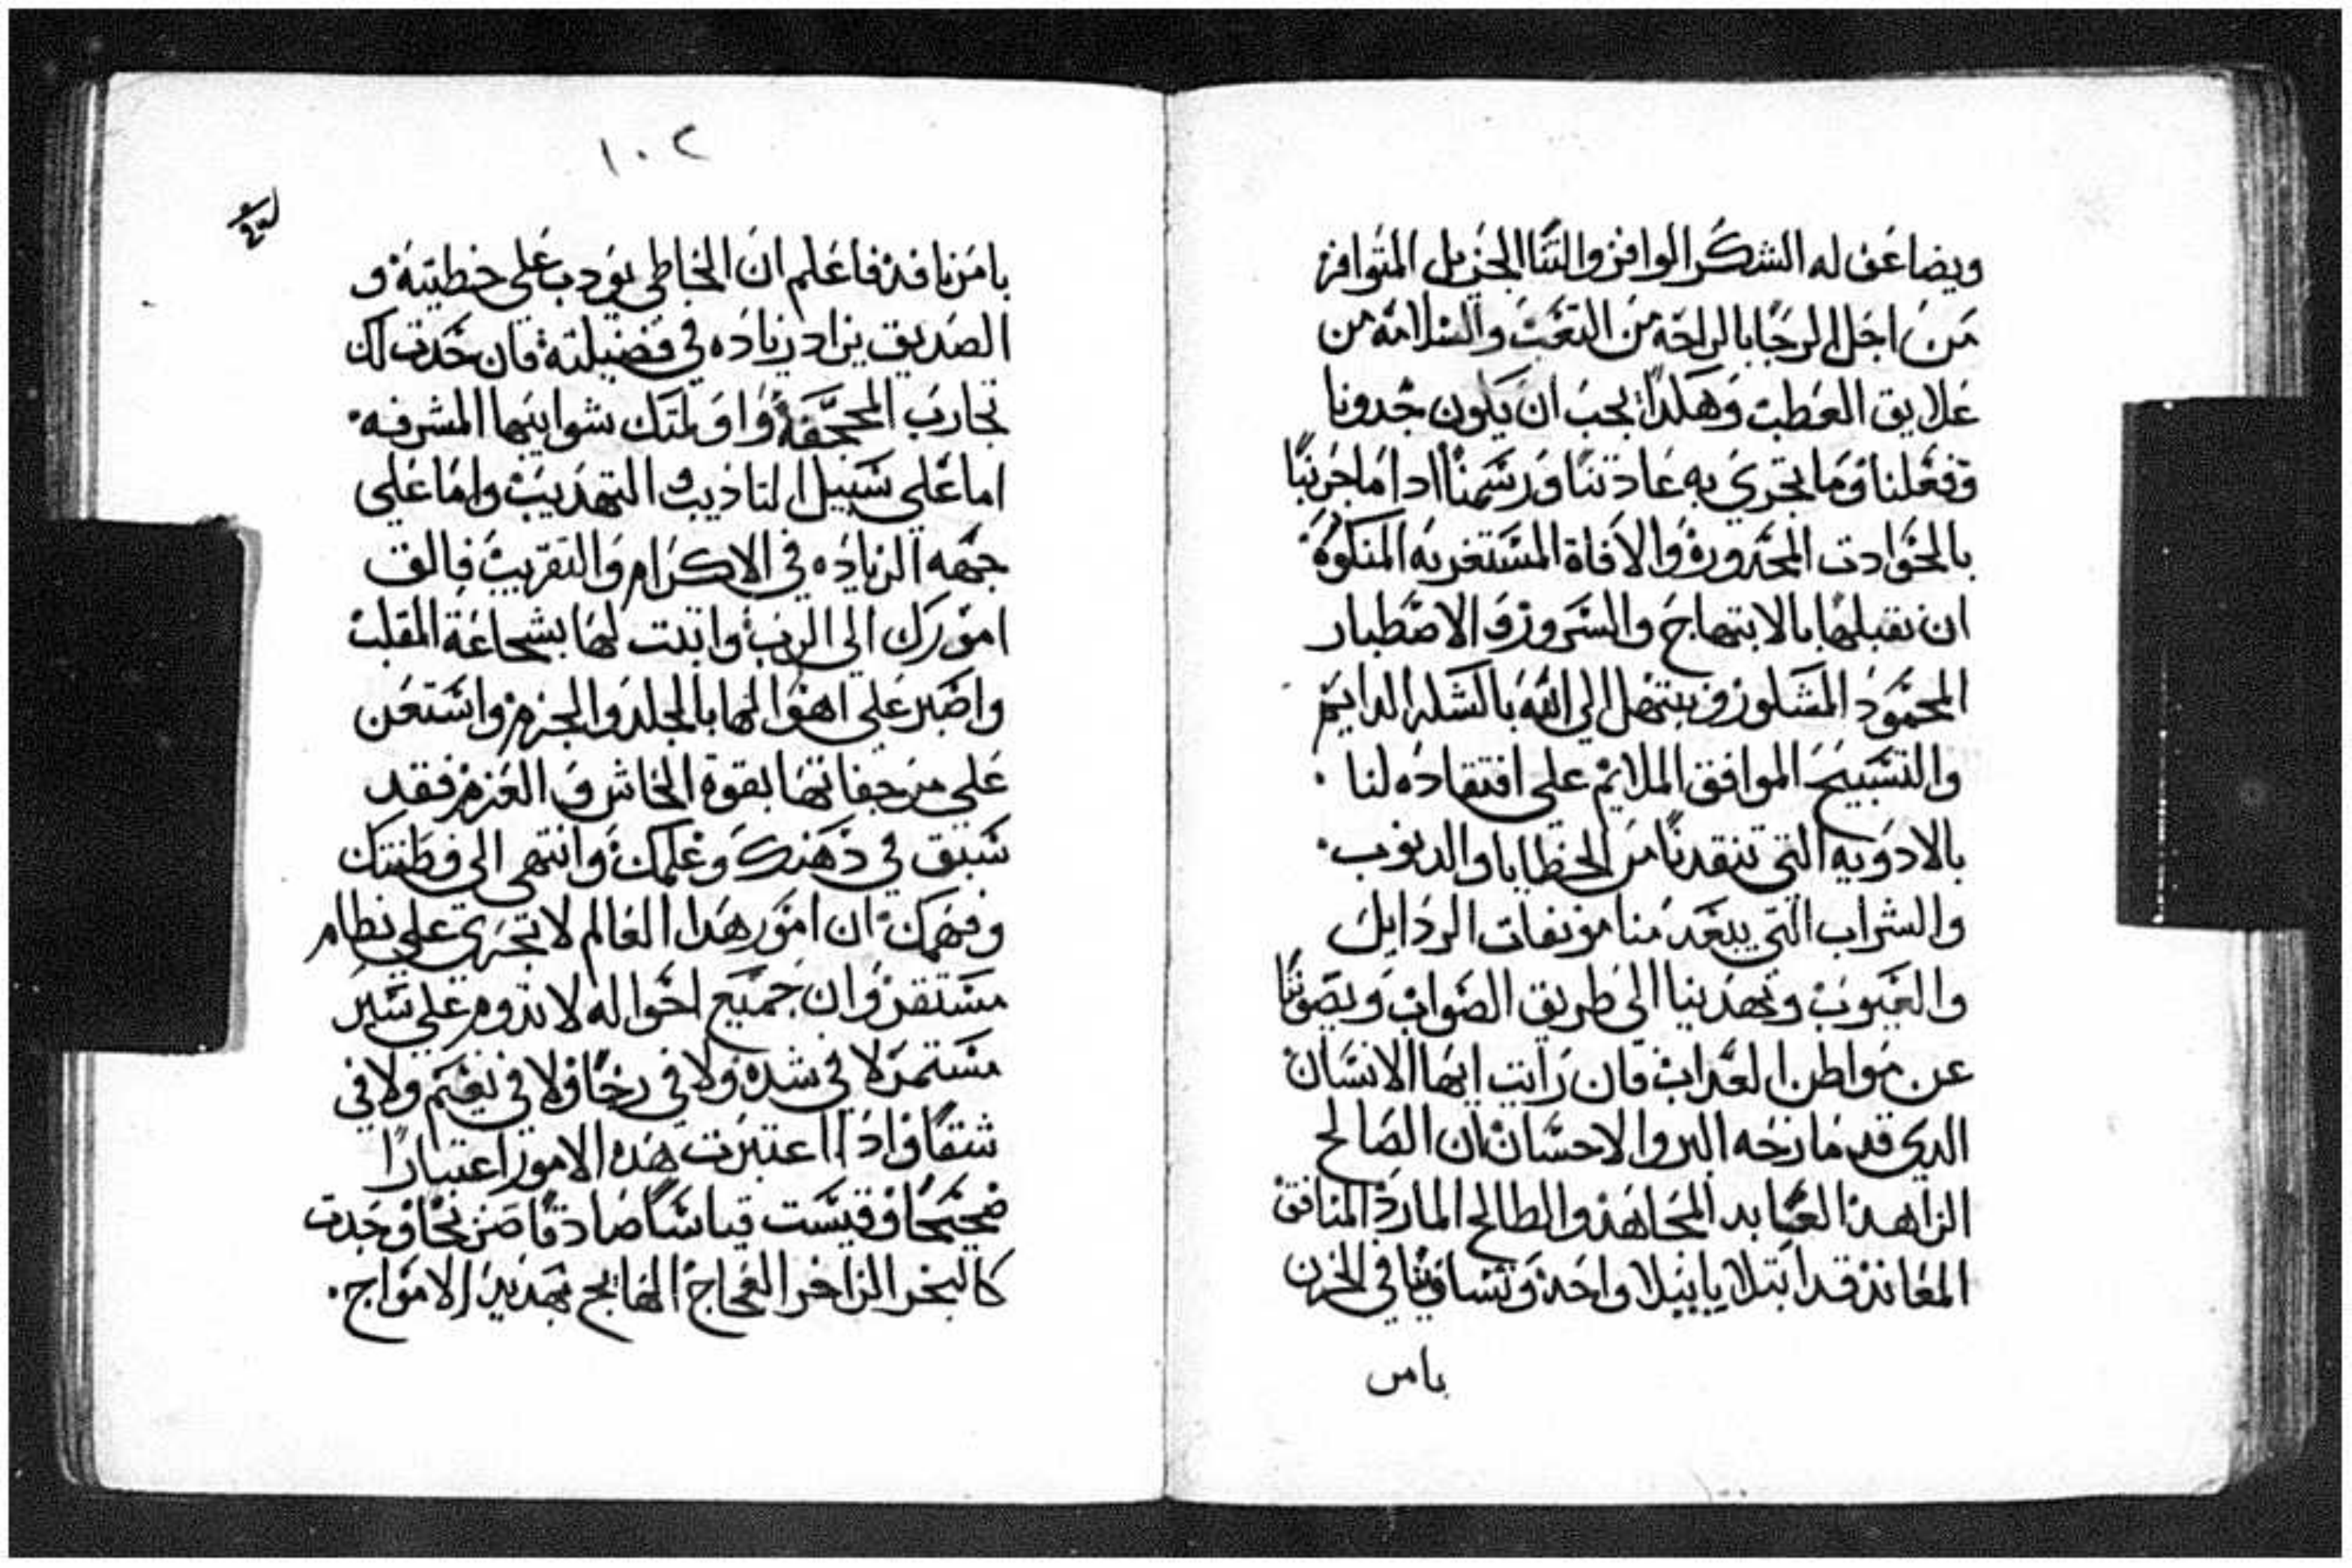 ويضاعف له الشكر الوافر والثنا الجزيل المتوافر
من اجل الرجا بالراحه من التعب والسلامه من
علايق العطب وهكدا يجب ان يكون جدونا
وفعلنا وما تجري به عادتنا ورسمنا ادا ما جربنا
بالحوادت المحدوره والافاة المستغربه المنكوره
ان نقبلها بالابتهاج والسرور والاصطبار
المحمود المشكور ونبتهل الي الله بالشكر الدايم
والتسبيح الموافق الملايم علي افتقاده لنا
بالادويه التي تنقدنا من الخطايا والدنوب
والشراب التي يبعد منا موبقات الردايل
والعيوب وتهدينا الي طريق الصواب ويصوننا
عن مواطن العداب فان رايت ايها الانسان
الدي قد مازحه البر والاحسان ان الصالح
الزاهد العابد المجاهد والطالح المارد المنافق
المعاند قد ابتلايا ببلا واحد وتساويتا في الحزن
بامر
١٠٢
بامر نافد فاعلم ان الخاطي يودب علي خطيته و
الصديق يزاد زياده في فضيلته فان حدت لك
تجارب المجحفه واوبلتك بشوايبها المشرفه
اما علي سبيل التاديب التهديب واما علي
جهه الزياده في الاكرام والتقريب فالق
امورك الي الرب واتبت لها بشجاعة القلب
واصبر علي اهوالها بالجلد والجزم واستعن
علي مرجفاتها بقوة الخاش و العزم فقد
سبق في دهنك وعلمك وانتهي الي فطنتك
وفهمك ان امور هدا العالم لا تجري علي نظام
مستقر وان جميع احواله لا تدوم علي سير
مستمر لا في شده ولا في رخا ولا في نعيم ولا في
شقا وادا اعتبرت هده الامور اعتبارا
صحيحا وقيست قياسا صادقا صريحا وجدت
كالبحر الزاخر العجاج الهايج بهدير الامواج